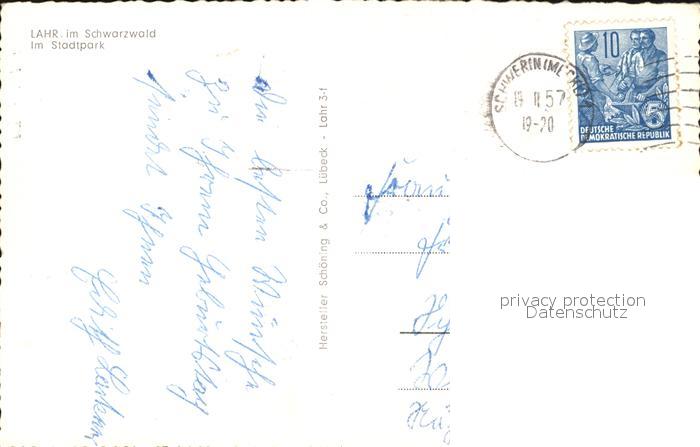 LAHR im Schwarzwald
Im Stadtpark
Die besten Wünsche
zu Ihrem Geburtstag
sendet Ihnen
Hersteller Schöning & Co., Lübeck - Lahr 3-f
SCHWERIN (MECKL)
19 II 57
19-20
10
5
DEUTSCHE
DEMOKRATISCHE REPUBLIK
privacy protection
Datenschutz